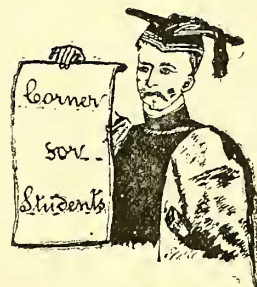 Corner
for
Students